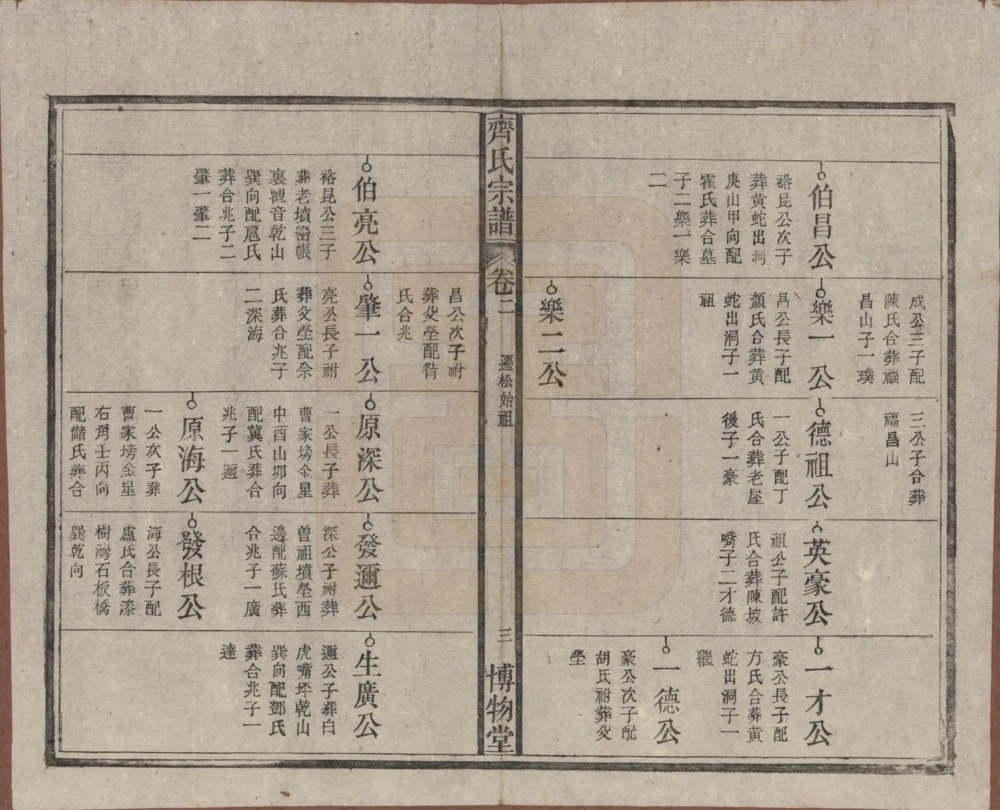 成公三子配
陳氏合葬福
昌山子一璞
三公子合葬
福昌山
伯昌公
裕昆公次子
葬黄蛇出洞
庚山甲向配
霍氏葬合墓
子二樂一樂
二
樂一公
昌公長子配
顏氏合葬黄
蛇出洞子一
祖
德祖公
一公子配丁
氏合葬老屋
後子一豪
英豪公
祖公子配許
氏合葬陳坡
嘴子二才德
一才公
豪公長子配
方氏合葬黄
蛇出洞子一
繼
一德公
豪公次子配
胡氏祔葬父
塋
樂二公
昌公次子祔
葬父塋配昝
氏合兆
齊氏宗譜
卷二
遷松始祖
三
博物堂
伯亮公
裕昆公三子
葬老墳崙帳
裏觀音乾山
巽向配扈氏
葬合兆子二
肇一肇二
肇一公
亮公長子祔
葬父塋配佘
氏葬合兆子
二深海
原深公
一公長子葬
曹家塝金星
中酉山卯向
配冀氏葬合
兆子一邇
原海公
一公次子葬
曹家塝金星
右角壬丙向
配儲氏葬合
發邇公
深公子祔葬
曾祖墳塋西
邊配蘇氏葬
合兆子一廣
發根公
海公長子配
盧氏合葬漆
樹灣石板橋
巽乾向
生廣公
邇公子葬白
虎嘴坪乾山
巽向配鄧氏
葬合兆子一
達